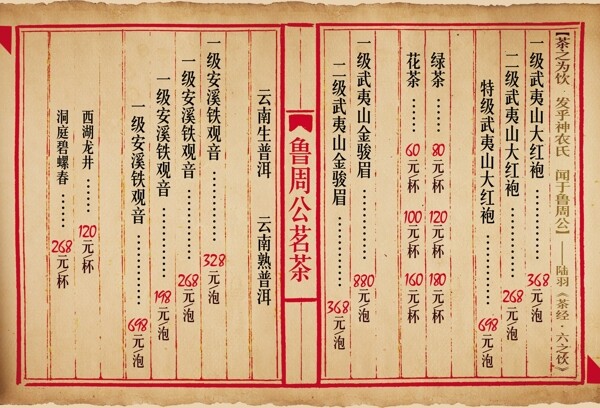 【茶之为饮·发乎神农氏 闻于鲁周公】——陆羽《茶经·六之饮》
一级武夷山大红袍…………368元/泡
二级武夷山大红袍…………268元/泡
特级武夷山大红袍…………698元/泡
绿茶……80元/杯 120元/杯 180元/杯
花茶……60元/杯 100元/杯 160元/杯
一级武夷山金骏眉…………880元/泡
二级武夷山金骏眉…………368元/泡
鲁周公茗茶
云南生普洱 云南熟普洱
一级安溪铁观音…………328元/泡
一级安溪铁观音…………268元/泡
一级安溪铁观音…………198元/泡
一级安溪铁观音…………698元/泡
西湖龙井……120元/杯
洞庭碧螺春……268元/杯